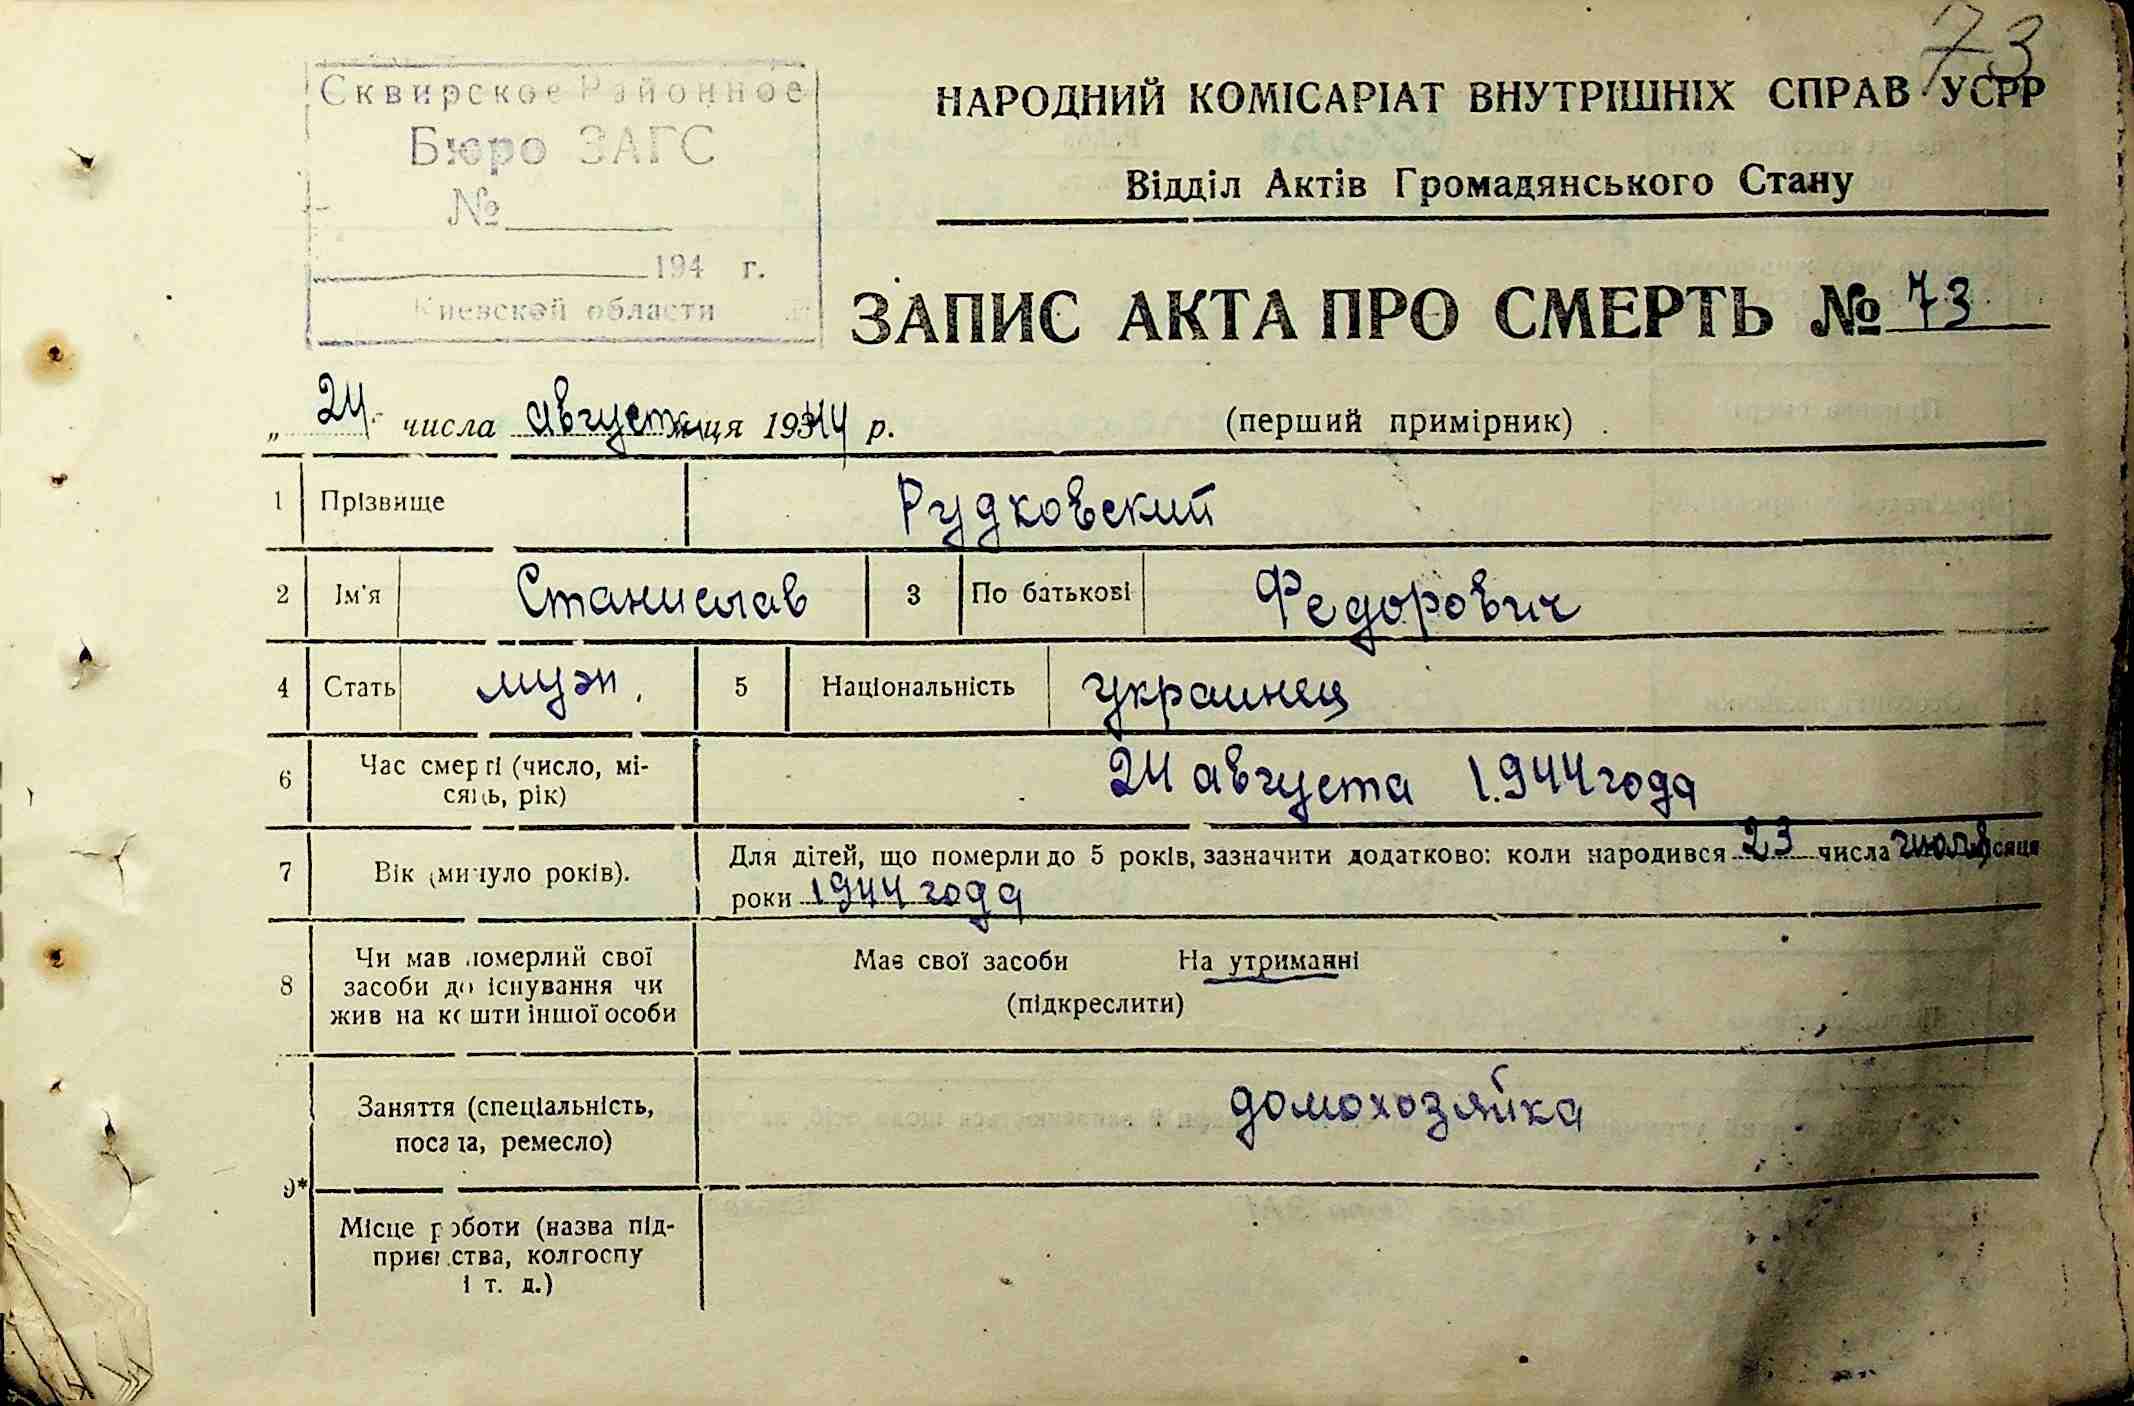 73
Сквирское Районное
Бюро ЗАГС
№
194 г.
Киевской области
НАРОДНИЙ КОМІСАРІАТ ВНУТРІШНІХ СПРАВ УСРР
Відділ Актів Громадянського Стану
ЗАПИС АКТА ПРО СМЕРТЬ № 73
„ 24 числа августа місяця 1944 р. (перший примірник)
1 Прізвище Рудковский
2 Ім'я Станислав 3 По батькові Федорович
4 Стать муж. 5 Національність украинец
6 Час смерті (число, мі-
сяць, рік) 24 августа 1944 года
7 Вік (минуло років). Для дітей, що померли до 5 років, зазначити додатково: коли народився 23 числа июля місяця
роки 1944 года
8 Чи мав померлий свої
засоби до існування чи
жив на кошти іншої особи
Має свої засоби На утриманні
(підкреслити)
9*
Заняття (спеціальність,
посада, ремесло) домохозяйка
Місце роботи (назва під-
приємства, колгоспу
і т. д.)